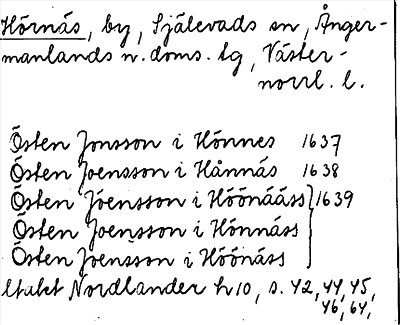 Hörnäs, by, Själevads sn, Ånger-
manlands n. doms. tg, Väster-
norrl. l.
Östen Jonsson i Hönnes 1637
Östen Joensson i Hånnäs 1638
Östen Jöensson i Höönääss } 1639
Östen Joensson i Hönnäss
Östen Joensson i Höönäss
Nordlander h 10, s. 42, 44, 45,
46, 64,